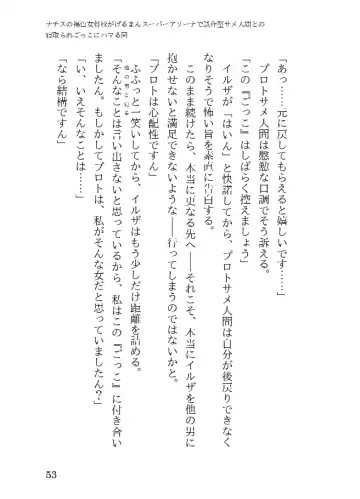 ナチスの褐色女将校がげるまんスーパーアリーナで試作型サメ人間との
寝取られごっこにハマる同
「あっ……元に戻してもらえると嬉しいです……」
プロトサメ人間は懇懃な口調でそう訴える。
「この『ごっこ』はしばらく控えましょう」
イルザが「はいん」と快諾してから、プロトサメ人間は自分が後戻りできなく
なりそうで怖い旨を素直に告白する。
このまま続けたら、本当に更なる先へ――それこそ、本当にイルザを他の男に
抱かせないと満足できないような――行ってしまうのではないかと。
「プロトは心配性ですん」
ふふっと一笑いしてから、イルザはもう少しだけ距離を詰める。
「そんなことは言い出さないと思っているから、私はこの『ごっこ』に付き合い
ましたん。もしかしてプロトは、私がそんな女だと思っていましたん？」
「い、いえそんなことは……」
「なら結構ですん」
53